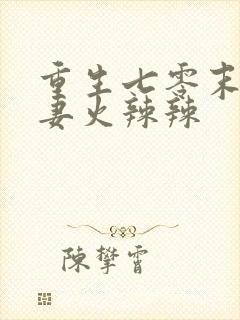 重生七零末
妻火辣辣
陳攀霄